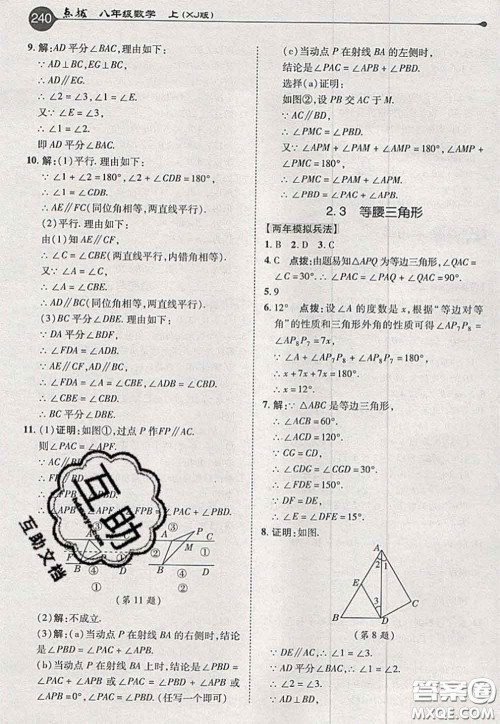 240 点拨 八年级数学 上(XJ版)
9. 解: AD平分∠BAC, 理由如下:
∵ AD⊥BC, EG⊥BC,
∴ AD∥EG,
∴ ∠2=∠3, ∠1=∠E.
又∵ ∠E=∠3,
∴ ∠1=∠2,
即AD平分∠BAC.
10. 解: (1)平行. 理由如下:
∵ ∠1+∠2=180°, ∠2+∠CDB=180°,
∴ ∠1=∠CDB,
∴ AE∥FC(同位角相等,两直线平行).
(2)平行. 理由如下:
∵ AE∥CF,
∴ ∠C=∠CBE(两直线平行,内错角相等).
又∵ ∠A=∠C,
∴ ∠A=∠CBE,
∴ AD∥BC(同位角相等,两直线平行).
(3)平分. 理由如下:
∵ DA平分∠BDF,
∴ ∠FDA=∠ADB.
∵ AE∥CF, AD∥BC,
∴ ∠FDA=∠A=∠CBE,
∠ADB=∠CBD,
∴ ∠CBE=∠CBD,
∴ BC平分∠DBE.
11. (1)证明: 如图①, 过点P作FP∥AC.
则∠PAC=∠APF.
∵ AC∥BD,
∴ FP∥BD,
∴ ∠FPB=∠PBD,
∴ ∠APB=∠APF+∠FPB=∠PAC+∠PBD.
① ② ③ ④
A C P M B D
(第11题)
(2)解: 不成立.
(3)解: (a)当动点P在射线BA的右侧时, 结论
是∠PBD=∠PAC+∠APB.
(b)当动点P在射线BA上时, 结论是∠PBD=
∠PAC+∠APB或∠PAC=∠PBD+∠APB或
∠APB=0°, ∠PAC=∠PBD. (任写一个即可)
(c)当动点P在射线BA的左侧时,
结论是∠PAC=∠APB+∠PBD.
选择(a)证明:
如图②, 设PB交AC于M.
∵ AC∥BD,
∴ ∠PMC=∠PBD.
又∵ ∠APM+∠PAM+∠AMP=180°,
∠AMP+∠PMC=180°,
∴ ∠PMC=∠PAM+∠APM,
∴ ∠PBD=∠PAC+∠APB.
2.3 等腰三角形
【两年模拟兵法】
1. B 2. D 3. C
4. C 点拨: 由题易知△APQ为等边三角形, ∠QAC=
∠C=30°, ∴ ∠PAC=∠PAQ+∠QAC=90°.
5. 9
6. 12° 点拨: 设∠A的度数是x, 根据“等边对等
角”的性质和三角形外角的性质可得∠AP₇P₈=
∠AP₈P₇=7x,
∵ ∠A+∠AP₇P₈+∠AP₈P₇=180°,
∴ x+7x+7x=180°,
∴ x=12°.
7. 解: ∵ △ABC是等边三角形,
∴ ∠ACB=60°,
∴ ∠ACD=120°.
∵ CG=CD,
∴ ∠CDG=30°,
∴ ∠FDE=150°.
∵ DF=DE,
∴ ∠E=15°.
8. 证明: 如图.
A 2 1 E 3 B D C
(第8题)
∵ DE∥AC,
∴ ∠1=∠3.
∵ AD平分∠BAC,
∴ ∠1=∠2,
∴ ∠2=∠3.
互助
互助文档
答案圈
MXQE.COM